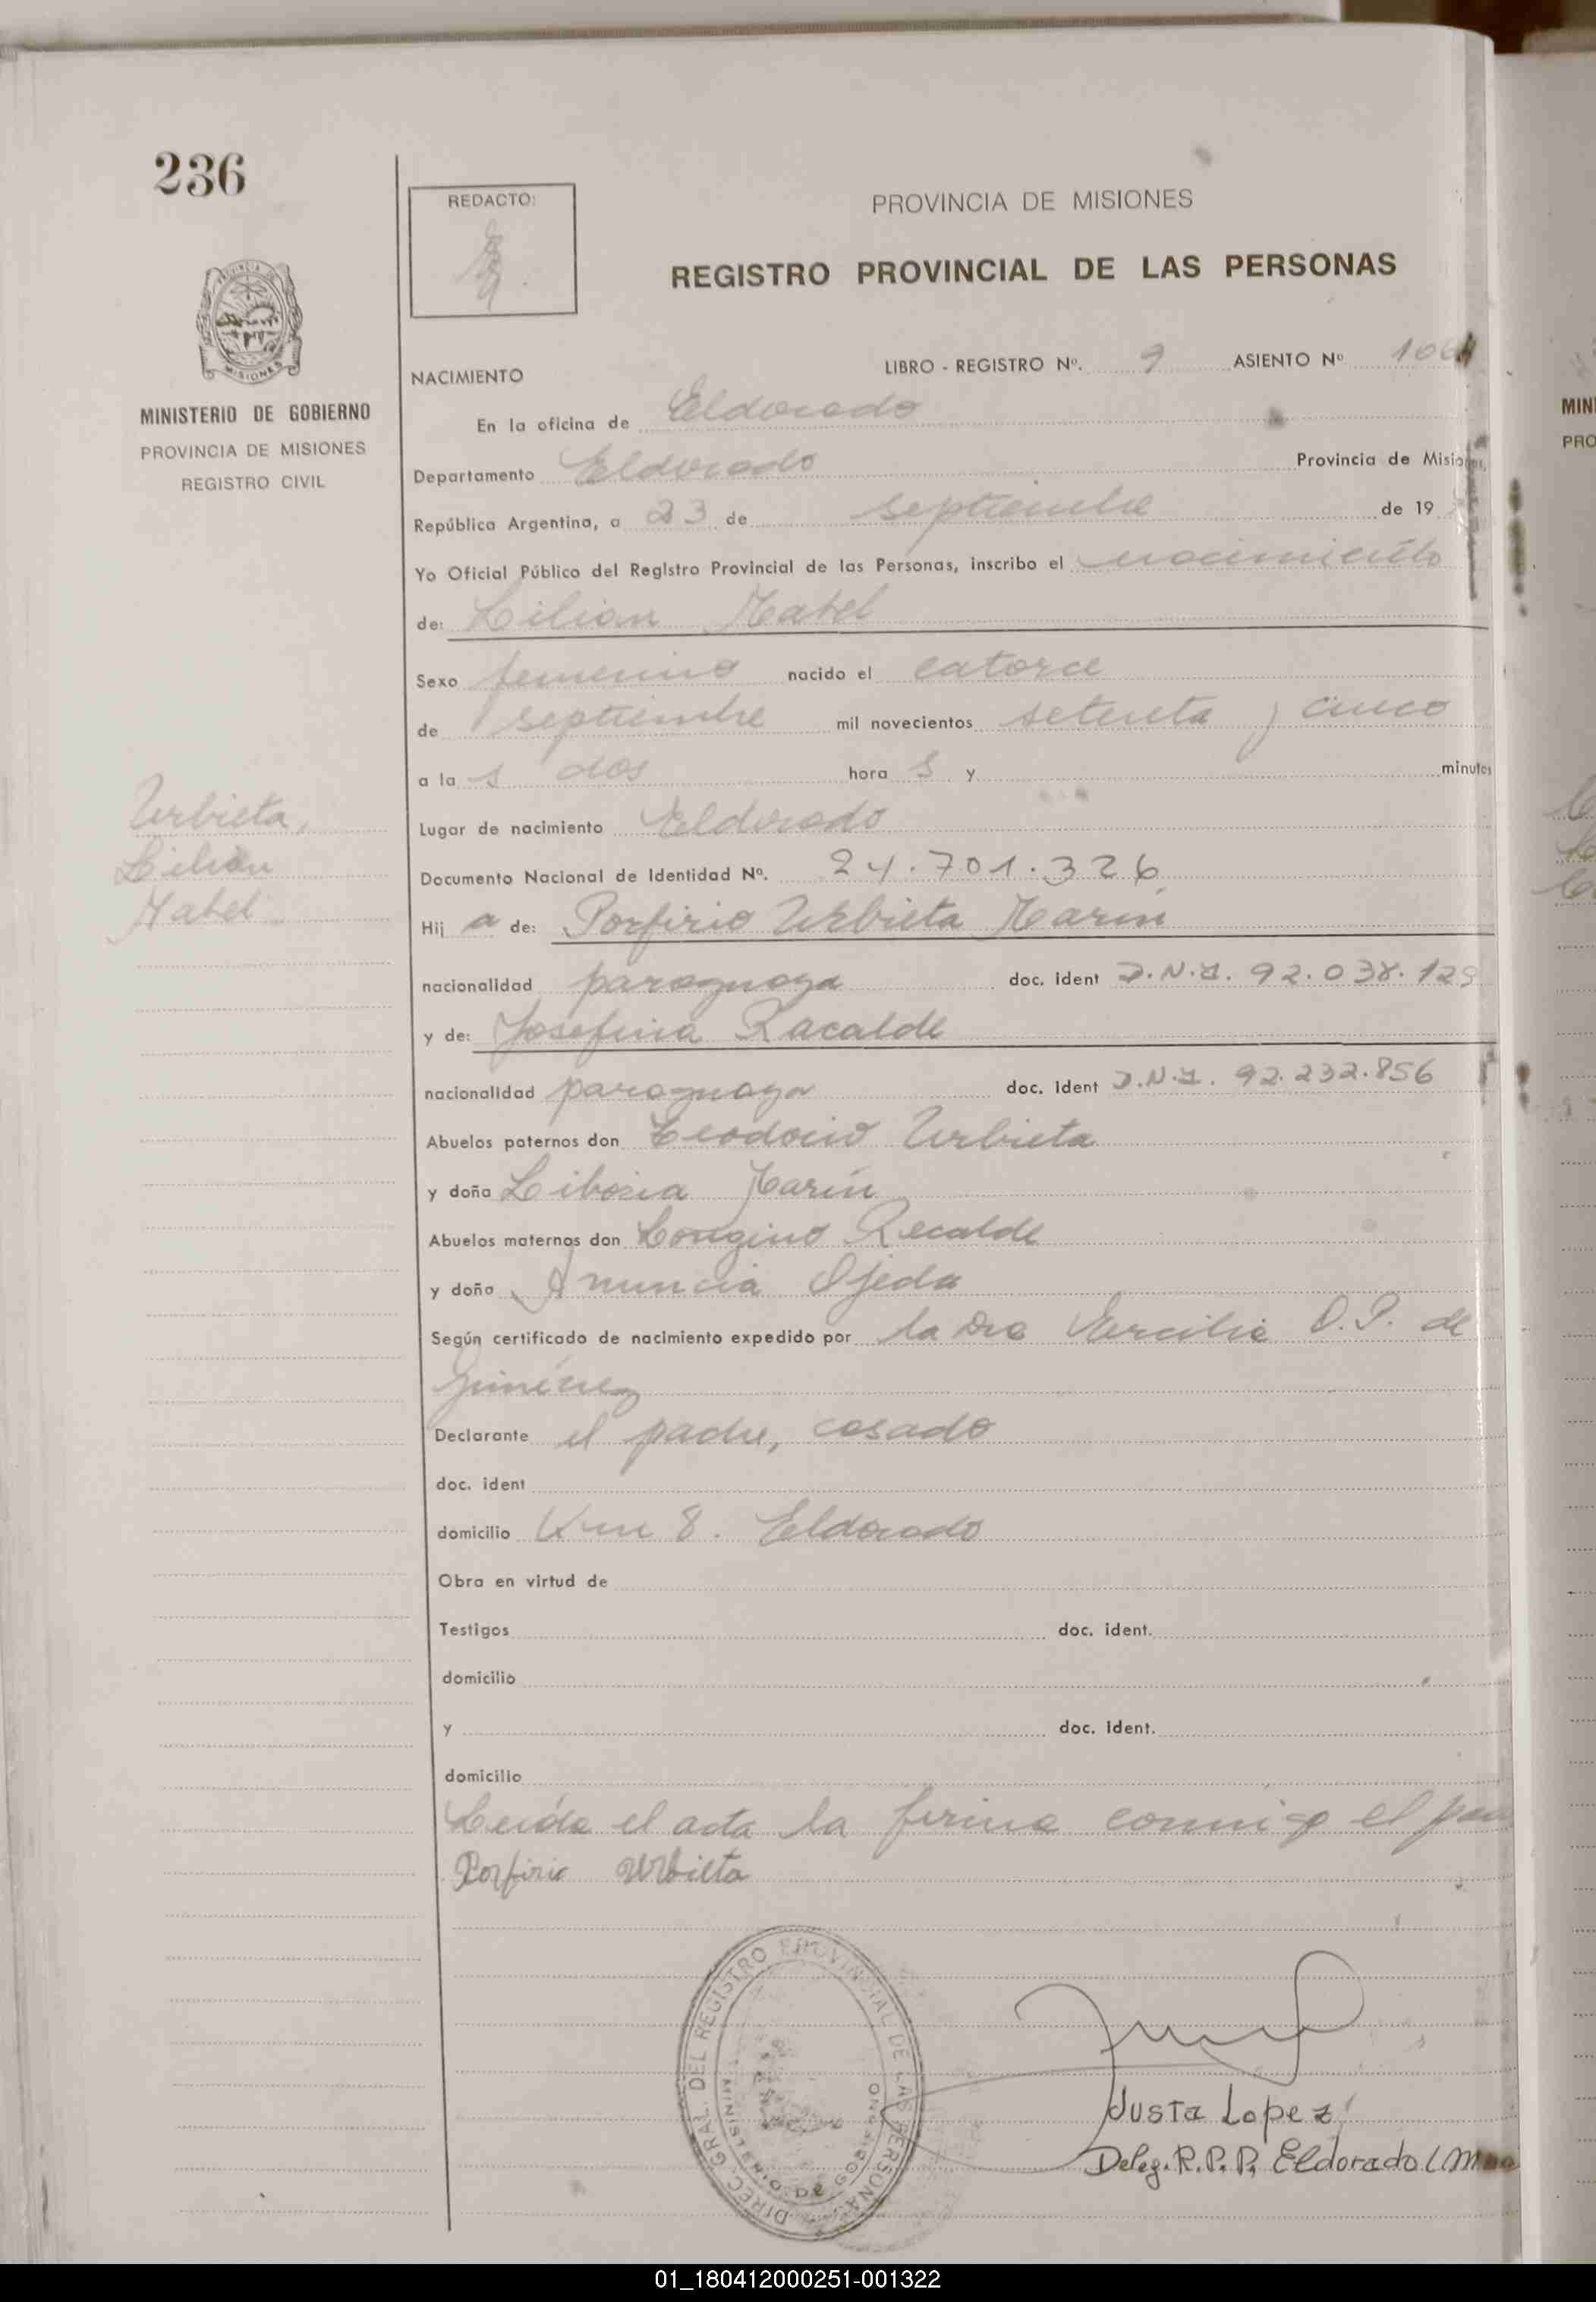 236
REDACTO:
PROVINCIA DE MISIONES
REGISTRO PROVINCIAL DE LAS PERSONAS
MISIONES
MINISTERIO DE GOBIERNO
PROVINCIA DE MISIONES
REGISTRO CIVIL
NACIMIENTO
LIBRO - REGISTRO Nº. 9 ASIENTO Nº
En la oficina de Eldorado
Departamento Eldorado Provincia de Misiones,
República Argentina, a 23 de septiembre de 19
Yo Oficial Público del Registro Provincial de las Personas, inscribo el nacimiento
de: Lilian Mabel
Sexo femenino nacido el catorce
de septiembre mil novecientos setenta y cinco
a la s dos hora s y minutos
Lugar de nacimiento Eldorado
Urbieta,
Lilian
Mabel
Documento Nacional de Identidad Nº. 24.701.326
Hij a de: Porfirio Urbieta Marin
nacionalidad paraguaya doc. ident D.N.I. 92.038.129
y de: Josefina Racalde
nacionalidad paraguaya doc. ident D.N.I. 92.232.856
Abuelos paternos don Teodocio Urbieta
y doña Liboria Marín
Abuelos maternos don Longino Recalde
y doña Anuncia Ojeda
Según certificado de nacimiento expedido por la Dra Ercilia O.P. de
Giménez
Declarante el padre, casado
doc. ident
domicilio Km 8. Eldorado
Obra en virtud de
Testigos doc. ident.
domicilio
y doc. ident.
domicilio
Leída el acta la firma conmigo el
Porfirio Urbieta
DIREC. GRAL. DEL REGISTRO PROVINCIAL DE LAS PERSONAS
MINISTERIO DE GOBIERNO
Justa Lopez
Deleg. R.P.P. Eldorado (Mnes
01_180412000251-001322